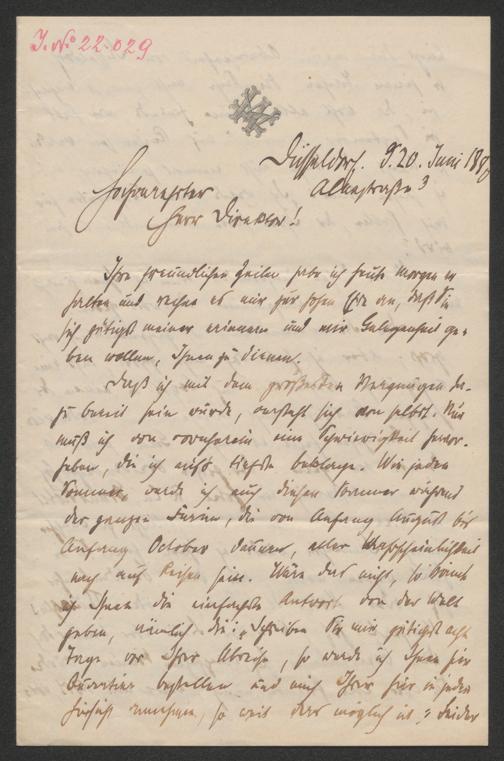 J. No 22.029
Düsseldorf. d. 20. Juni 188
Altestraße 3
Hochverehrter
Herr Direktor!
Ihre freundlichen Zeilen habe ich heute morgen er
halten und rechne es mir zur hohen Ehre an, daß Sie
sich gütigst meiner erinnern und mir Gelegenheit ge-
ben wollen, Ihnen zu dienen.
Daß ich mit dem größesten Vergnügen da-
zu bereit sein würde, versteht sich von selbst. Nur
muß ich von vornherein eine Schwierigkeit hervor-
heben, die ich aufs tiefste beklage. Wie jeden
Sommer, werde ich auch diesen Sommer während
der ganzen Ferien, die von Anfang August bis
Anfang October dauern, aller Wahrscheinlichkeit
nach auf Reisen sein. Wäre das nicht, so könnte
ich Ihnen die einfachste Antwort von der Welt
geben, nämlich die: „Schreiben Sie mir gütigst acht
Tage vor Ihrer Abreise, so werde ich Ihnen hier
Quartier bestellen und mich Ihrer hier in jeder
Hinsicht annehmen, so weit das möglich ist." Leider